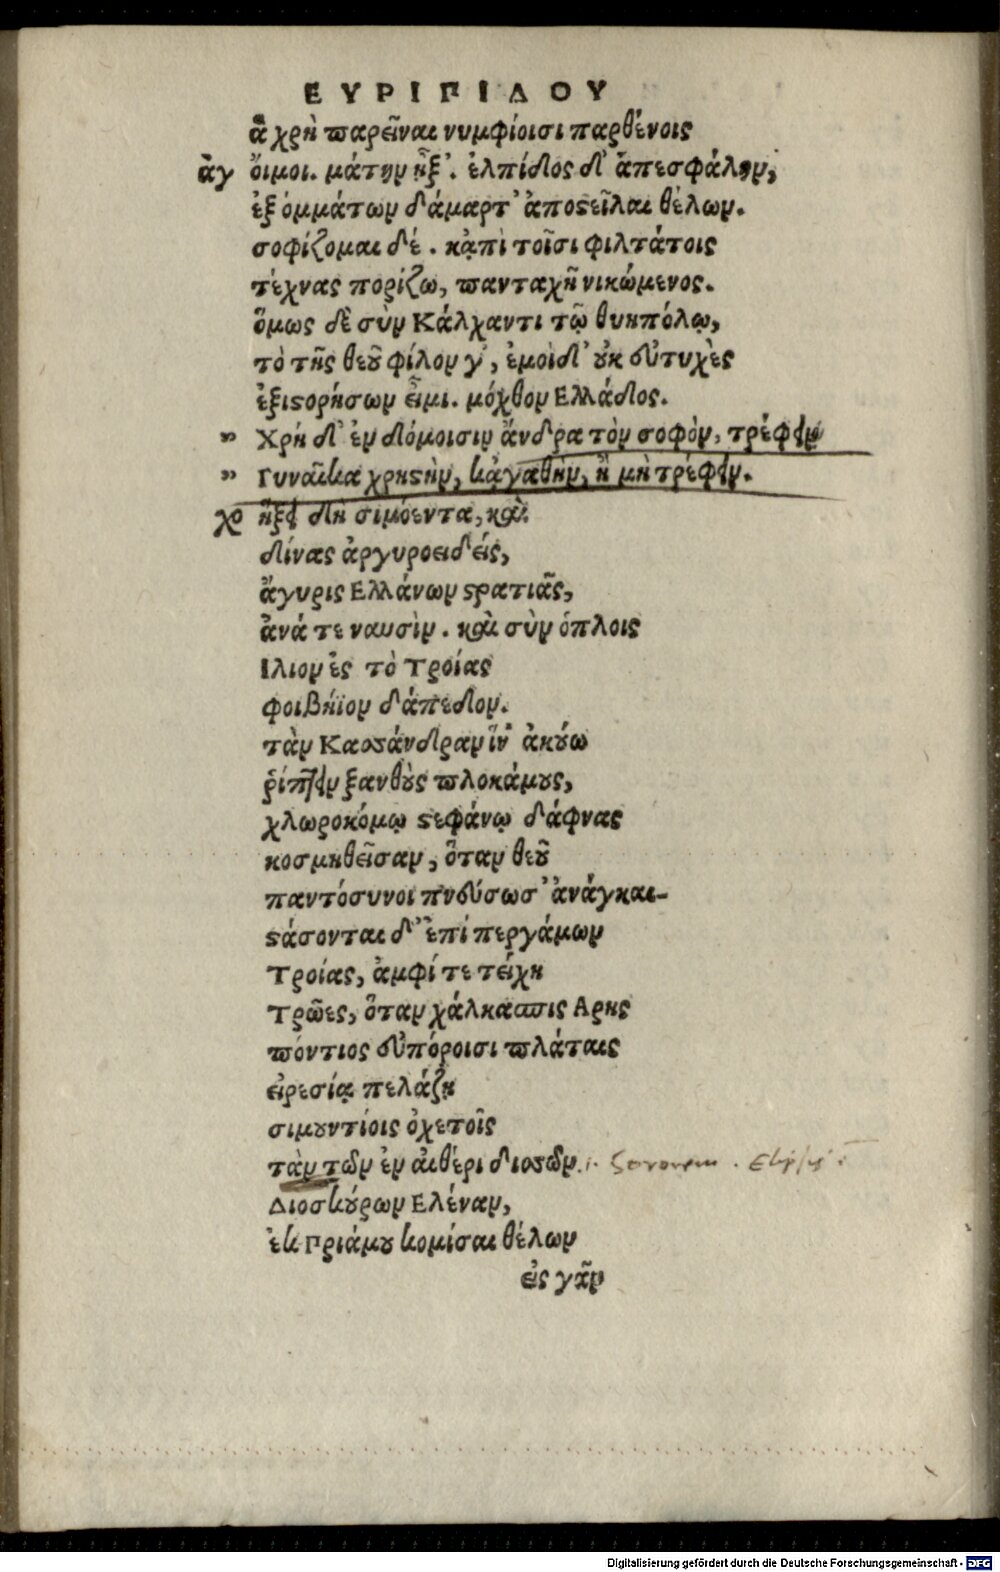 ΕΥΡΙΠΙΔΟΥ
ἃ χρὴ παρεῖναι νυμφίοισι παρθένοις
ἀγ οἴμοι. μάτην ᾖξ'. ἐλπίδος δ' ἀπεσφάλην,
ἐξ ὀμμάτων δάμαρτ' ἀποστεῖλαι θέλων.
σοφίζομαι δέ. κᾀπὶ τοῖσι φιλτάτοις
τέχνας πορίζω, πανταχῆ νικώμενος.
ὅμως δὲ σὺν Κάλχαντι τῷ θυηπόλῳ,
τὸ τῆς θεοῦ φίλον γ', ἐμοὶ δ' οὐκ εὐτυχὲς
ἐξιστορήσων εἶμι. μόχθον Ελλάδος.
" Χρὴ δ' ἐν δόμοισιν ἄνδρα τὸν σοφὸν, τρέφειν
" Γυναῖκα χρηστὴν, κᾀγαθὴν, ἢ μὴ τρέφειν.
χο ἥξει δὴ σιμόεντα, καὶ
δίνας ἀργυροειδεῖς,
ἄγυρις Ελλάνων στρατιᾶς,
ἀνά τε ναυσὶν. καὶ σὺν ὅπλοις
Ιλιον ἐς τὸ Τροίας
φοιβήϊον δάπεδον.
τὰν Κασσάνδραν ἵν' ἀκούω
ῥίπτειν ξανθοὺς πλοκάμους,
χλωροκόμῳ στεφάνῳ δάφνας
κοσμηθεῖσαν, ὅταν θεοῦ
παντόσυνοι πνεύσωσ' ἀνάγκαι-
στάσονται δ' ἐπὶ περγάμων
Τροίας, ἀμφί τε τείχη
Τρῶες, ὅταν χάλκασπις Αρης
πόντιος εὐπόροισι πλάταις
εἰρεσίᾳ πελάζῃ
σιμουντίοις ὀχετοῖς
τὰν τῶν ἐν αἰθέρι δισσῶν. i. sororem.
Διοσκούρων Ελέναν,
ἐκ Πριάμου κομίσαι θέλων
εἰς γᾶν
Digitalisierung gefördert durch die Deutsche Forschungsgemeinschaft - DFG